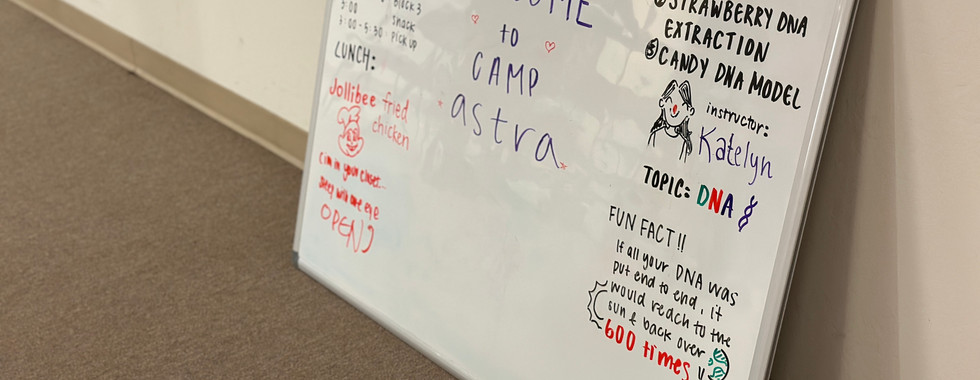 Block 3
3:00 snack
3:00-5:30 pick up
LUNCH:
Jollibee fried
chicken
(im in your closet...
sleep with one eye
OPEN)
to
CAMP
astra
STRAWBERRY DNA
EXTRACTION
③ CANDY DNA MODEL
instructor:
Katelyn
TOPIC: DNA
FUN FACT!!
If all your DNA was
put end to end, it
would reach to the
sun & back over
600 times